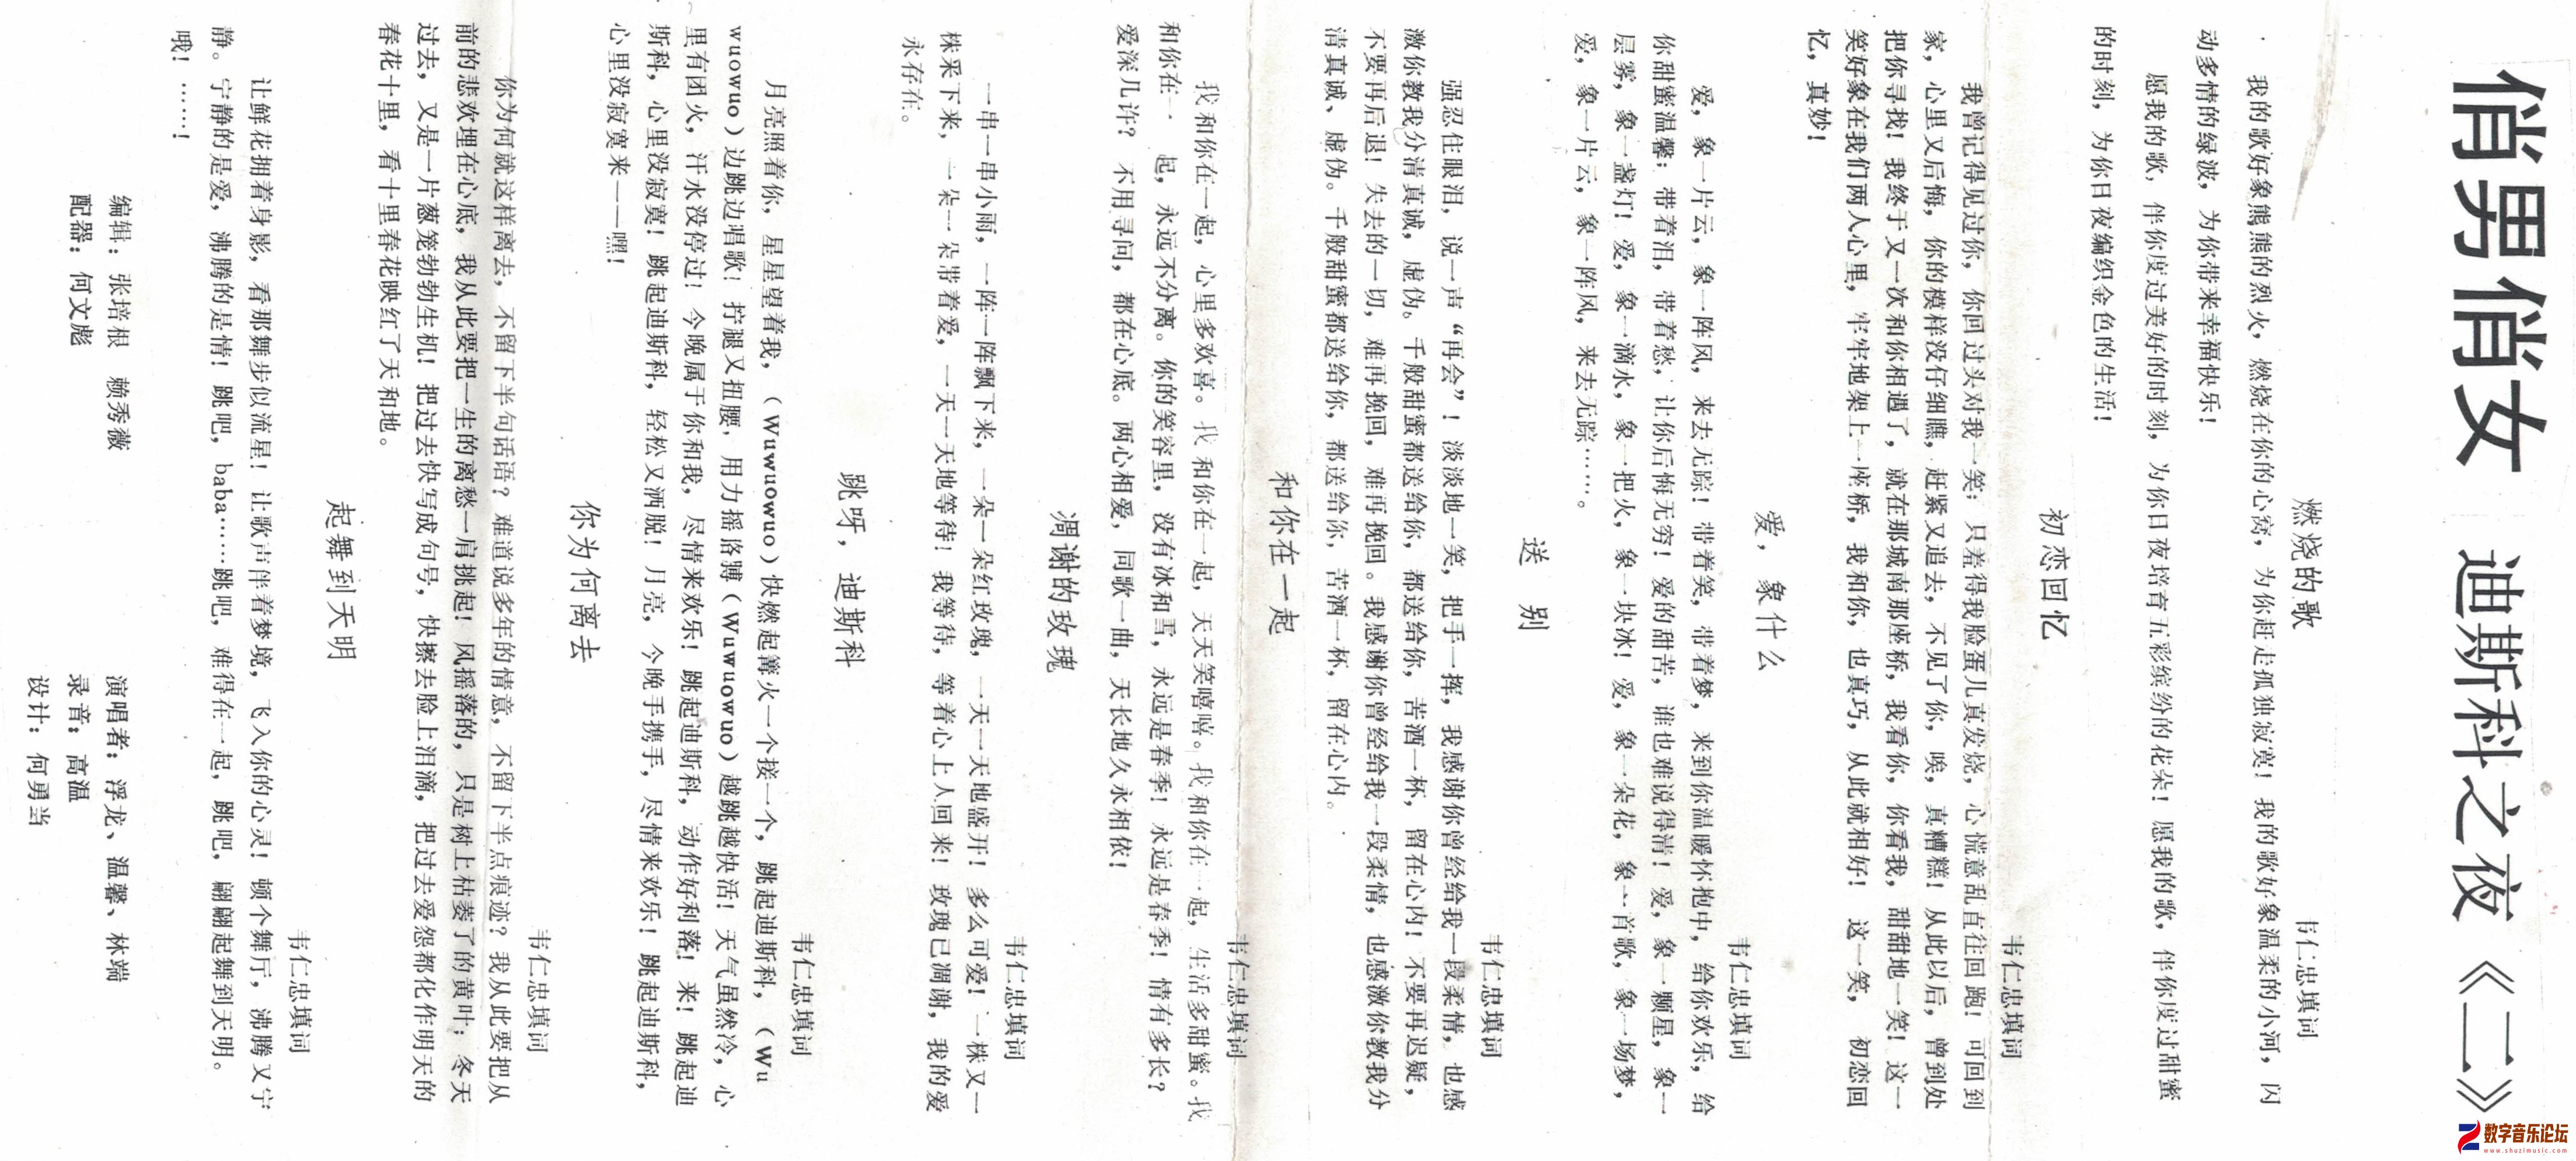 俏男俏女 迪斯科之夜《二》
燃烧的歌
韦仁忠填词
我的歌好象熊熊的烈火，燃烧在你的心窝，为你赶走孤独寂寞！我的歌好象温柔的小河，闪
动多情的绿波，为你带来幸福快乐！
愿我的歌，伴你度过美好的时刻，为你日夜培育五彩缤纷的花朵！愿我的歌，伴你度过甜蜜
的时刻，为你日夜编织金色的生活！
初恋回忆
韦仁忠填词
我曾记得见过你，你回过头对我一笑；只羞得我脸蛋儿真发烧，心慌意乱直往回跑！可回到
家，心里又后悔，你的模样没仔细瞧，赶紧又追去，不见了你，唉，真糟糕！从此以后，曾到处
把你寻找！我终于又一次和你相遇了，就在那城南那座桥，我看你，你看我，甜甜地一笑！这一
笑好象在我们两人心里，牢牢地架上一座桥，我和你，也真巧，从此就相好！这一笑，初恋回
忆，真妙！
爱，象什么
韦仁忠填词
爱，象一片云，象一阵风，来去无踪！带着笑，带着梦，来到你温暖怀抱中，给你欢乐，给
你甜蜜温馨；带着泪，带着愁，让你后悔无穷！爱的甜苦，谁也难说得清！爱，象一颗星，象一
层雾，象一盏灯！爱，象一滴水，象一把火，象一块冰！爱，象一朵花，象一首歌，象一场梦，
爱，象一片云，象一阵风，来去无踪……。
送 别
韦仁忠填词
强忍住眼泪，说一声“再会”！淡淡地一笑，把手一挥，我感谢你曾经给我一段柔情，也感
激你教我分清真诚，虚伪。千般甜蜜都送给你，都送给你，苦酒一杯，留在心内！不要再迟疑，
不要再后退！失去的一切，难再挽回，难再挽回。我感谢你曾经给我一段柔情，也感激你教我分
清真诚、虚伪。千般甜蜜都送给你，都送给你，苦酒一杯，留在心内。
和你在一起
韦仁忠填词
我和你在一起，心里多欢喜。我和你在一起，天天笑嘻嘻。我和你在一起，生活多甜蜜。我
和你在一起，永远不分离。你的笑容里，没有冰和雪，永远是春季！永远是春季！情有多长？
爱深几许？不用寻问，都在心底。两心相爱，同歌一曲，天长地久永相依！
凋谢的玫瑰
韦仁忠填词
一串一串小雨，一阵一阵飘下来，一朵一朵红玫瑰，一天一天地盛开！多么可爱！一株又一
株采下来，一朵一朵带着爱，一天一天地等待！我等待，等着心上人回来！玫瑰已凋谢，我的爱
永存在。
跳呀，迪斯科
韦仁忠填词
月亮照着你，星星望着我，（Wuwuowuo）快燃起篝火一个接一个，跳起迪斯科，（Wu
wuowuo）边跳边唱歌！拧腿又扭腰，用力摇胳膊（Wuwuowuo）越跳越快活！天气虽然冷，心
里有团火，汗水没停过！今晚属于你和我，尽情来欢乐！跳起迪斯科，动作好利落！来！跳起迪
斯科，心里没寂寞！跳起迪斯科，轻松又洒脱！月亮，今晚手携手，尽情来欢乐！跳起迪斯科，
心里没寂寞来——嘿！
你为何离去
韦仁忠填词
你为何就这样离去，不留下半句话语？难道说多年的情意，不留下半点痕迹？我从此要把从
前的悲欢埋在心底，我从此要把一生的离愁一肩挑起！风摇落的，只是树上枯萎了的黄叶；冬天
过去，又是一片葱笼勃勃生机！把过去快写成句号，快擦去脸上泪滴，把过去爱怨都化作明天的
春花十里，看十里春花映红了天和地。
起舞到天明
韦仁忠填词
让鲜花拥着身影，看那舞步似流星！让歌声伴着梦境，飞入你的心灵！顿个舞厅，沸腾又宁
静。宁静的是爱，沸腾的是情！跳吧，baba……跳吧，难得在一起，跳吧，翩翩起舞到天明。
哦！……！
编辑：张培根 赖秀薇
配器：何文彪
演唱者：浮龙、温馨、林端
录音：高温
设计：何勇当
数字音乐论坛
www.shuzimusic.com